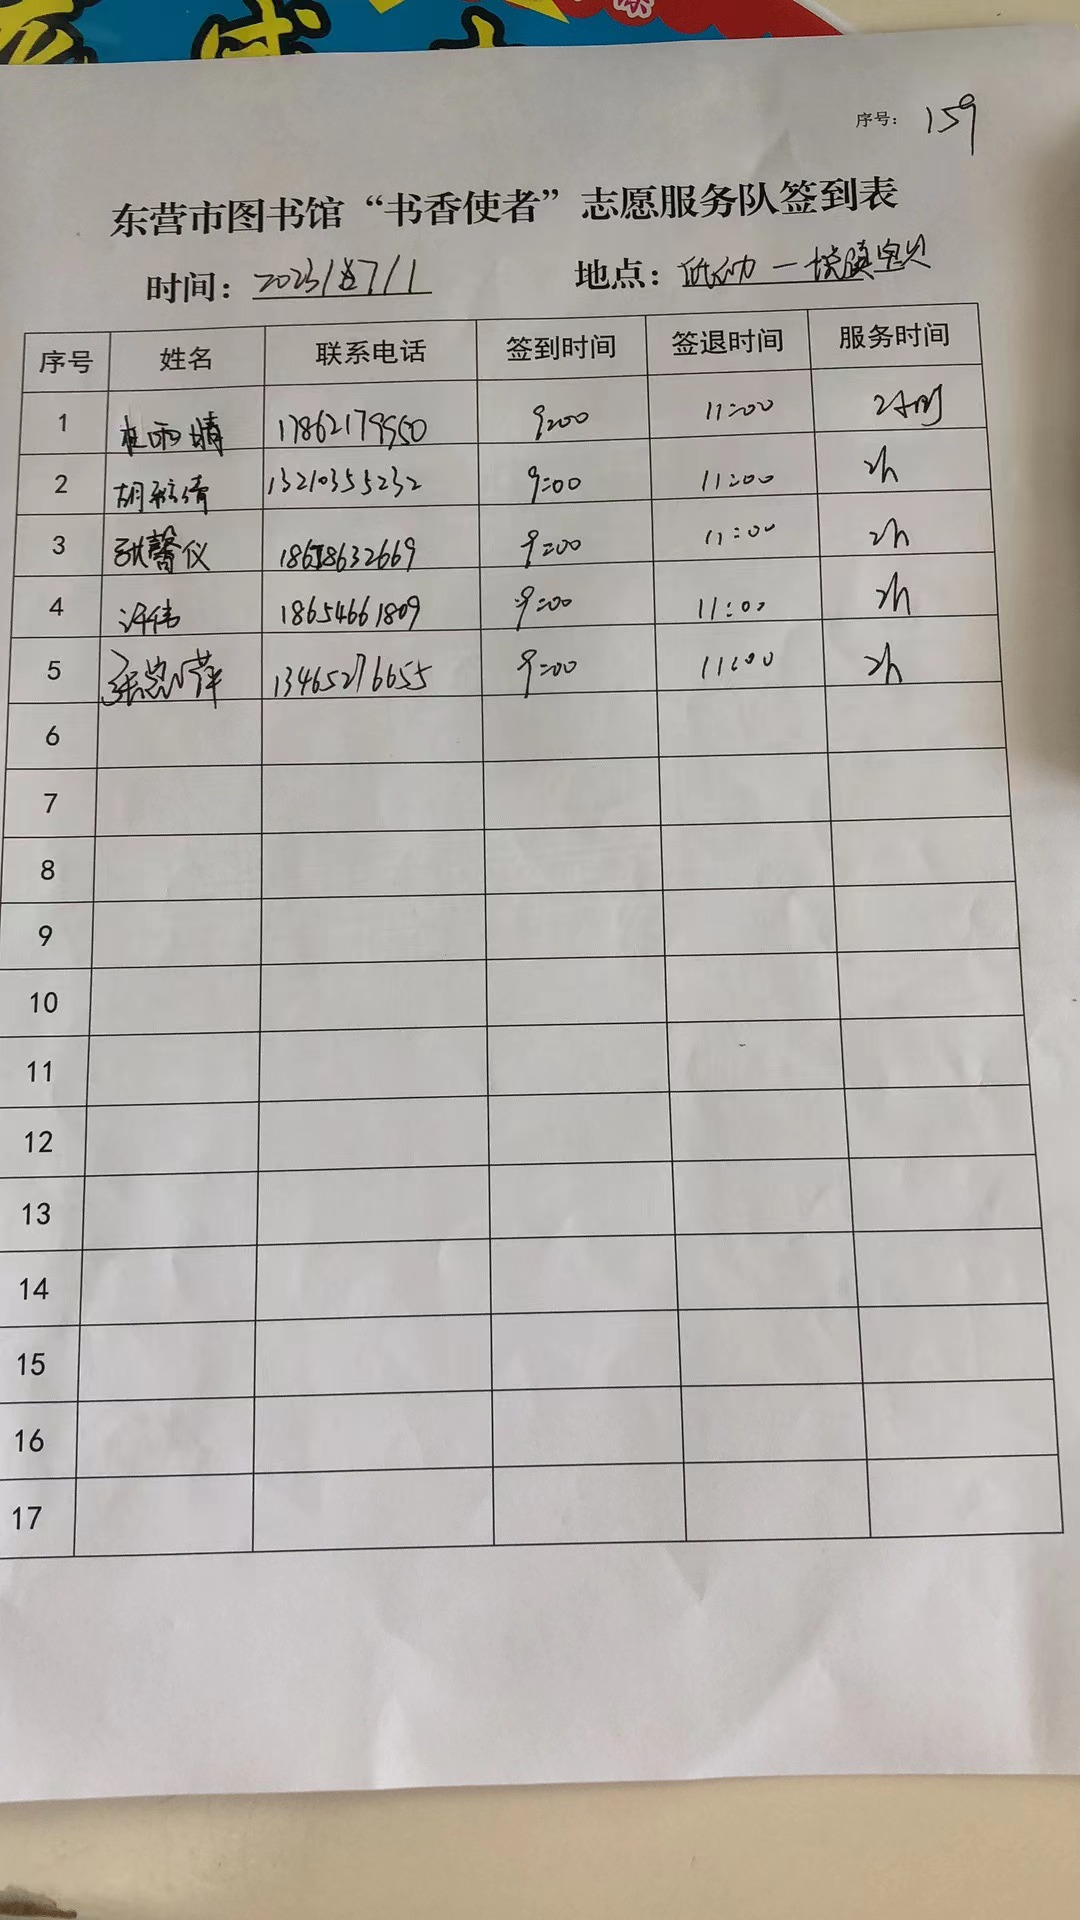 序号: 159
东营市图书馆“书香使者”志愿服务队签到表
时间: 2023/7/1 地点: 低幼一悦读宝贝
序号 姓名 联系电话 签到时间 签退时间 服务时间
1 杜雨晴 17862179550 9:00 11:00 2小时
2 胡 倩 13210355232 9:00 11:00 2h
3 张馨仪 9:00 11:00 2h
4 许伟 18654661809 9:00 11:00 2h
5 张 萍 13465276655 9:00 11:00 2h
6
7
8
9
10
11
12
13
14
15
16
17